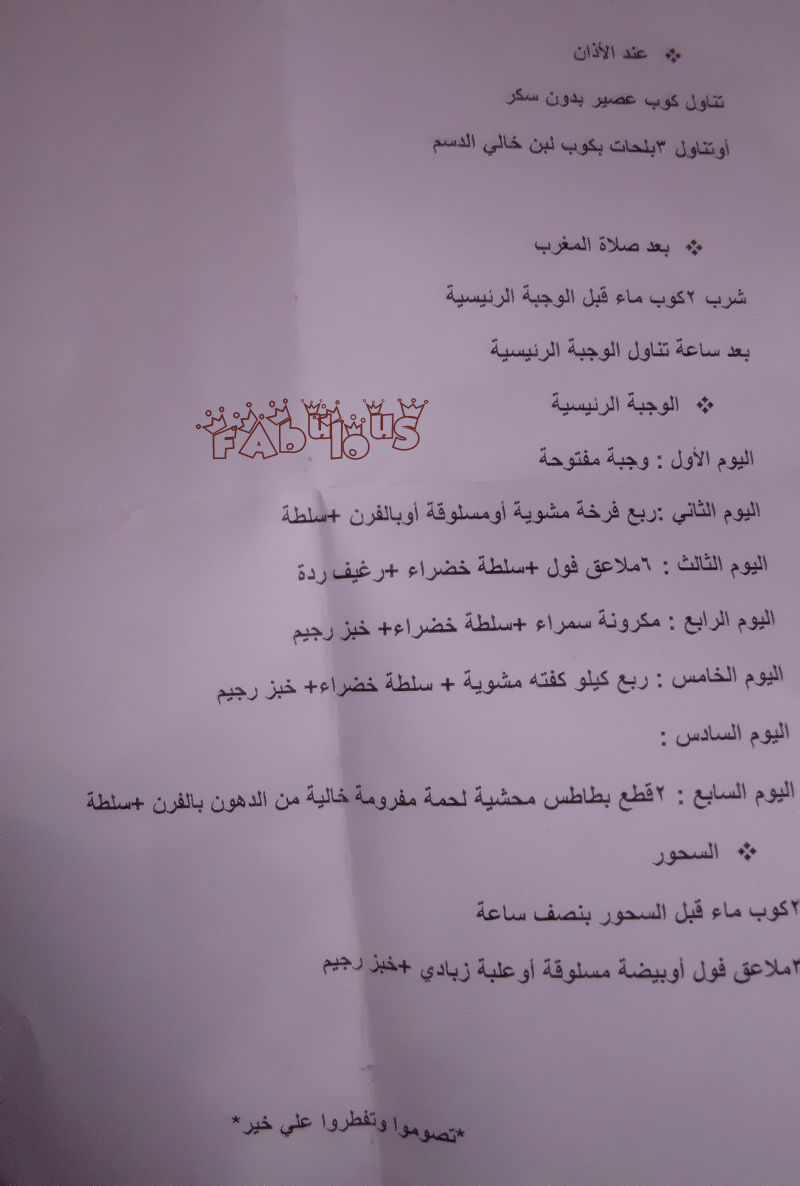 ❖ عند الأذان
تناول كوب عصير بدون سكر
أوتناول ٣بلحات بكوب لبن خالي الدسم
❖ بعد صلاة المغرب
شرب ٢كوب ماء قبل الوجبة الرئيسية
بعد ساعة تناول الوجبة الرئيسية
❖ الوجبة الرئيسية
FABULOUS
اليوم الأول : وجبة مفتوحة
اليوم الثاني :ربع فرخة مشوية أومسلوقة أوبالفرن +سلطة
اليوم الثالث : ٦ملاعق فول +سلطة خضراء +رغيف ردة
اليوم الرابع : مكرونة سمراء +سلطة خضراء+ خبز رجيم
اليوم الخامس : ربع كيلو كفته مشوية + سلطة خضراء+ خبز رجيم
اليوم السادس :
اليوم السابع : ٢قطع بطاطس محشية لحمة مفرومة خالية من الدهون بالفرن +سلطة
❖ السحور
٢كوب ماء قبل السحور بنصف ساعة
٣ملاعق فول أوبيضة مسلوقة أوعلبة زبادي +خبز رجيم
*تصوموا وتفطروا علي خير*